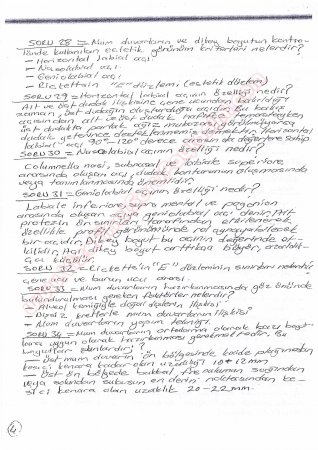 SORU 28 = Mum duvarların ve dikey boyutun kontro-
lünde kullanılan estetik görünüm kriterleri nelerdir?
— Horizontal labial açı
— Nasolabial açı
— Geniolabial açı
— Rickettsin "E" düzlemi (estetik düzlem)
SORU 29 = Horizontal labial açının özelliği nedir?
Alt ve üst dudak ilişkisine çene ucundan bakıldığı
zaman, üst dudağın oluşturduğu açıdır. Bu
açısından alt ve üst dudak hafifçe temastayken
üst dudakta
dudak yeterince desteklenmemiş demektir. Horizontal
labial açı 90°-120° derece arasında değerlere sahip
SORU 30 = Nasolabial açının özelliği nedir?
Columella nasi, subnasal ve labiale superiore
arasında oluşan açı, dudak konturunun oluşmasında
veya tanımlanmasında önemlidir.
SORU 31 = Geniolabial açının özelliği nedir?
Labiale inferiore, supramental ve pogonion
arasında oluşan açıya geniolabial açı denir. Alt
protezin ön sınırları tarafından etkilenerek
özellikle profil görünümünde rol oynayabilecek
bir açıdır. Dikey boyut bu açının değerinde et-
kilidir. Açı dikey boyut arttıkça büyür, azaldık-
ça küçülür.
SORU 32 = Rickettsin "E" düzleminin sınırları nelerdir?
çene ucu ve burun ucu arası
SORU 33 = Mum duvarların hazırlanmasında göz önünde
bulundurulması gereken faktörler nelerdir?
— Alveol kemiğiyle doğal dişlerin ilişkisi
— Dişsiz kretlerle mum duvarların ilişkisi
— Mum duvarların yapım tekniği
SORU 34 = Mum duvarların ortalama olarak bazı boyut-
lara uygun olarak hazırlanması gerekmektedir. Bu
uygunluklar nelerdir?
— Üst mum duvarın ön bölgesinde kaide plağından
kesici kenara kadar olan uzaklığı 10-12 mm
— Üst ön bölgede bukkal frenulumun sağından
veya solundan sulcusun en derin noktasından ke-
sici kenara olan uzaklık 20-22 mm
4